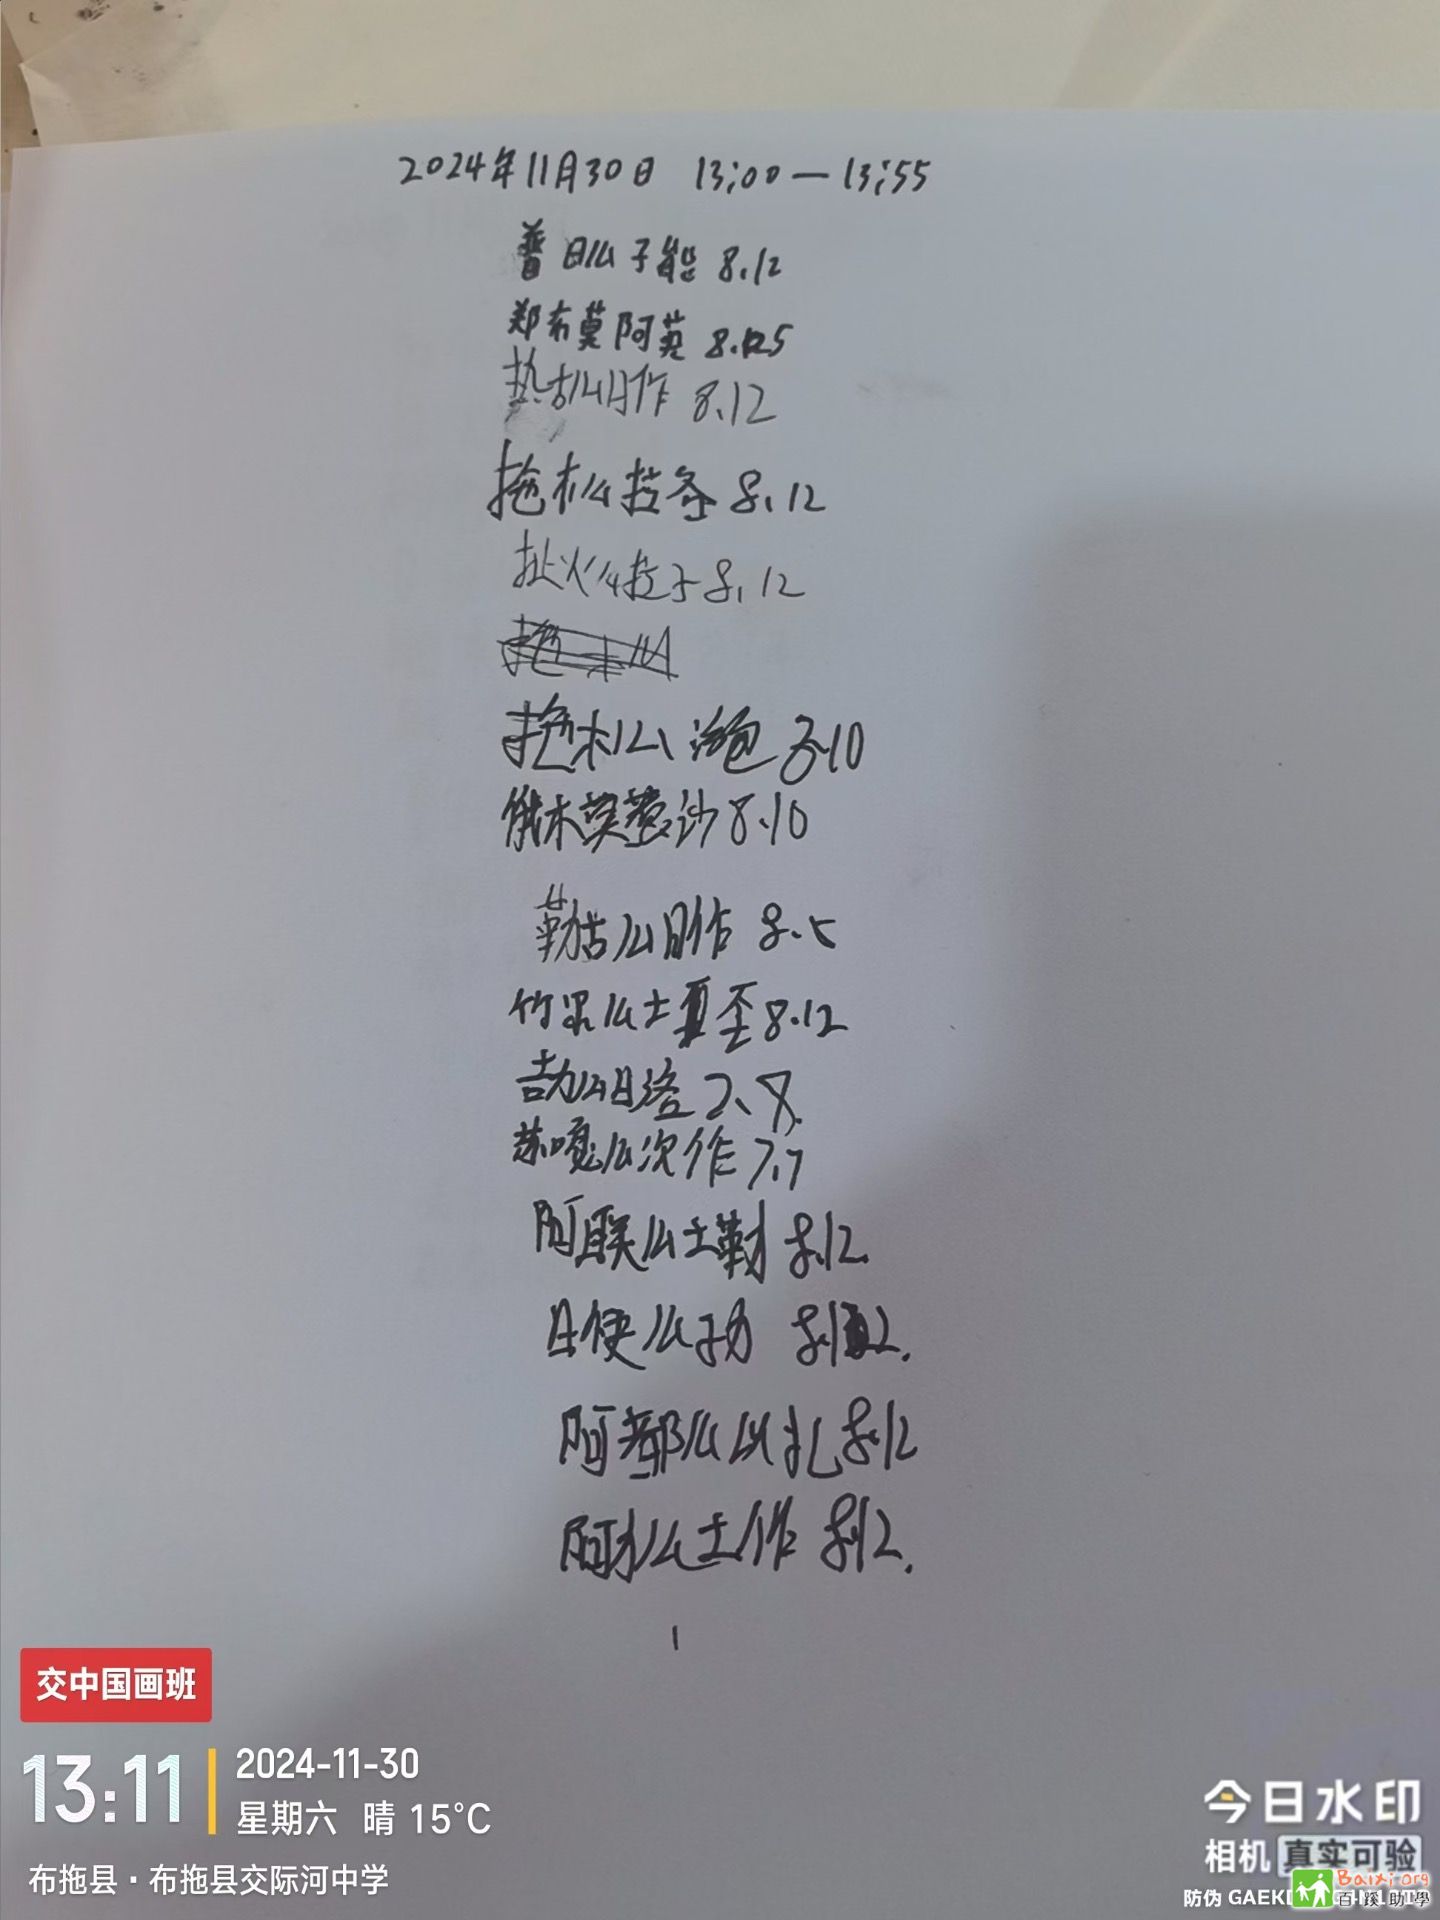 2024年11月30日 13:00—13:55
普日么子能 8.12
郑布莫阿英 8.125
热古么日作 8.12
拖木么拉各 8.12
扯火么拉子 8.12
拖木么 8.10
俄木莫惹沙 8.10
勒古么日作 8.5
竹果么土 8.12
吉力么日洛 7.8
苏嘎么次作 7.7
阿联么土勒 8.12.
日使么子力 8.12.
阿都么以扎 8.12
阿木么土作 8.12.
交中国画班
13:11
2024-11-30
星期六 晴 15°C
布拖县·布拖县交际河中学
今日水印
相机 真实可验
防伪
Baixi.org
百蹊助學